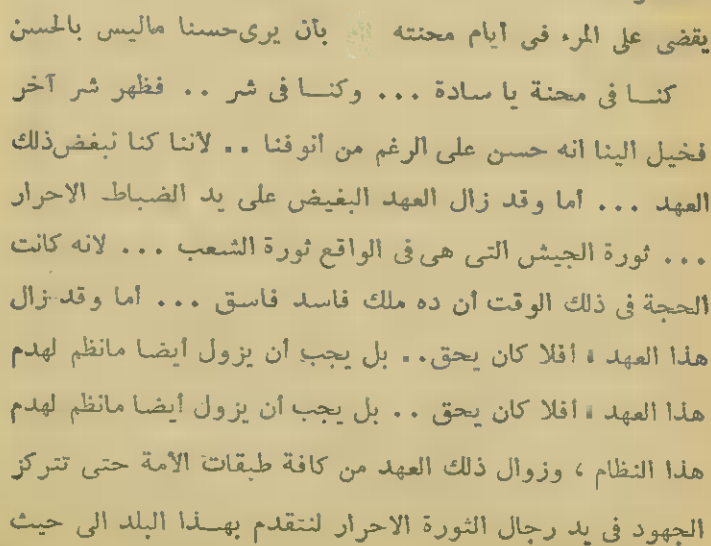 يقضى على المرء فى أيام محنته بأن يرى حسنا ماليس بالحسن
كنا فى محنة يا سادة ... وكنا فى شر .. فظهر شر آخر
فخيل الينا انه حسن على الرغم من أنوفنا .. لأننا كنا نبغض ذلك
العهد ... أما وقد زال العهد البغيض على يد الضباط الاحرار
... ثورة الجيش التى هى فى الواقع ثورة الشعب ... لانه كانت
الحجة فى ذلك الوقت أن ده ملك فاسد فاسق ... أما وقد زال
هذا العهد ، أفلا كان يحق .. بل يجب أن يزول أيضا مانظم لهدم
هذا العهد ، أفلا كان يحق .. بل يجب أن يزول أيضا مانظم لهدم
هذا النظام ، وزوال ذلك العهد من كافة طبقات الأمة حتى تتركز
الجهود فى يد رجال الثورة الاحرار لنتقدم بهذا البلد الى حيث